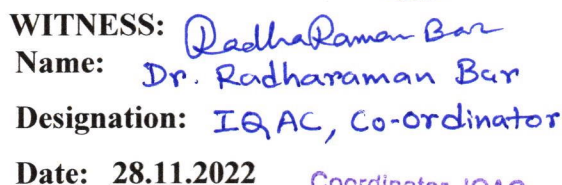 WITNESS: RadhaRaman Bar
Name: Dr. Radharaman Bar
Designation: IQAC, Co-ordinator
Date: 28.11.2022
Coordinator, IQAC